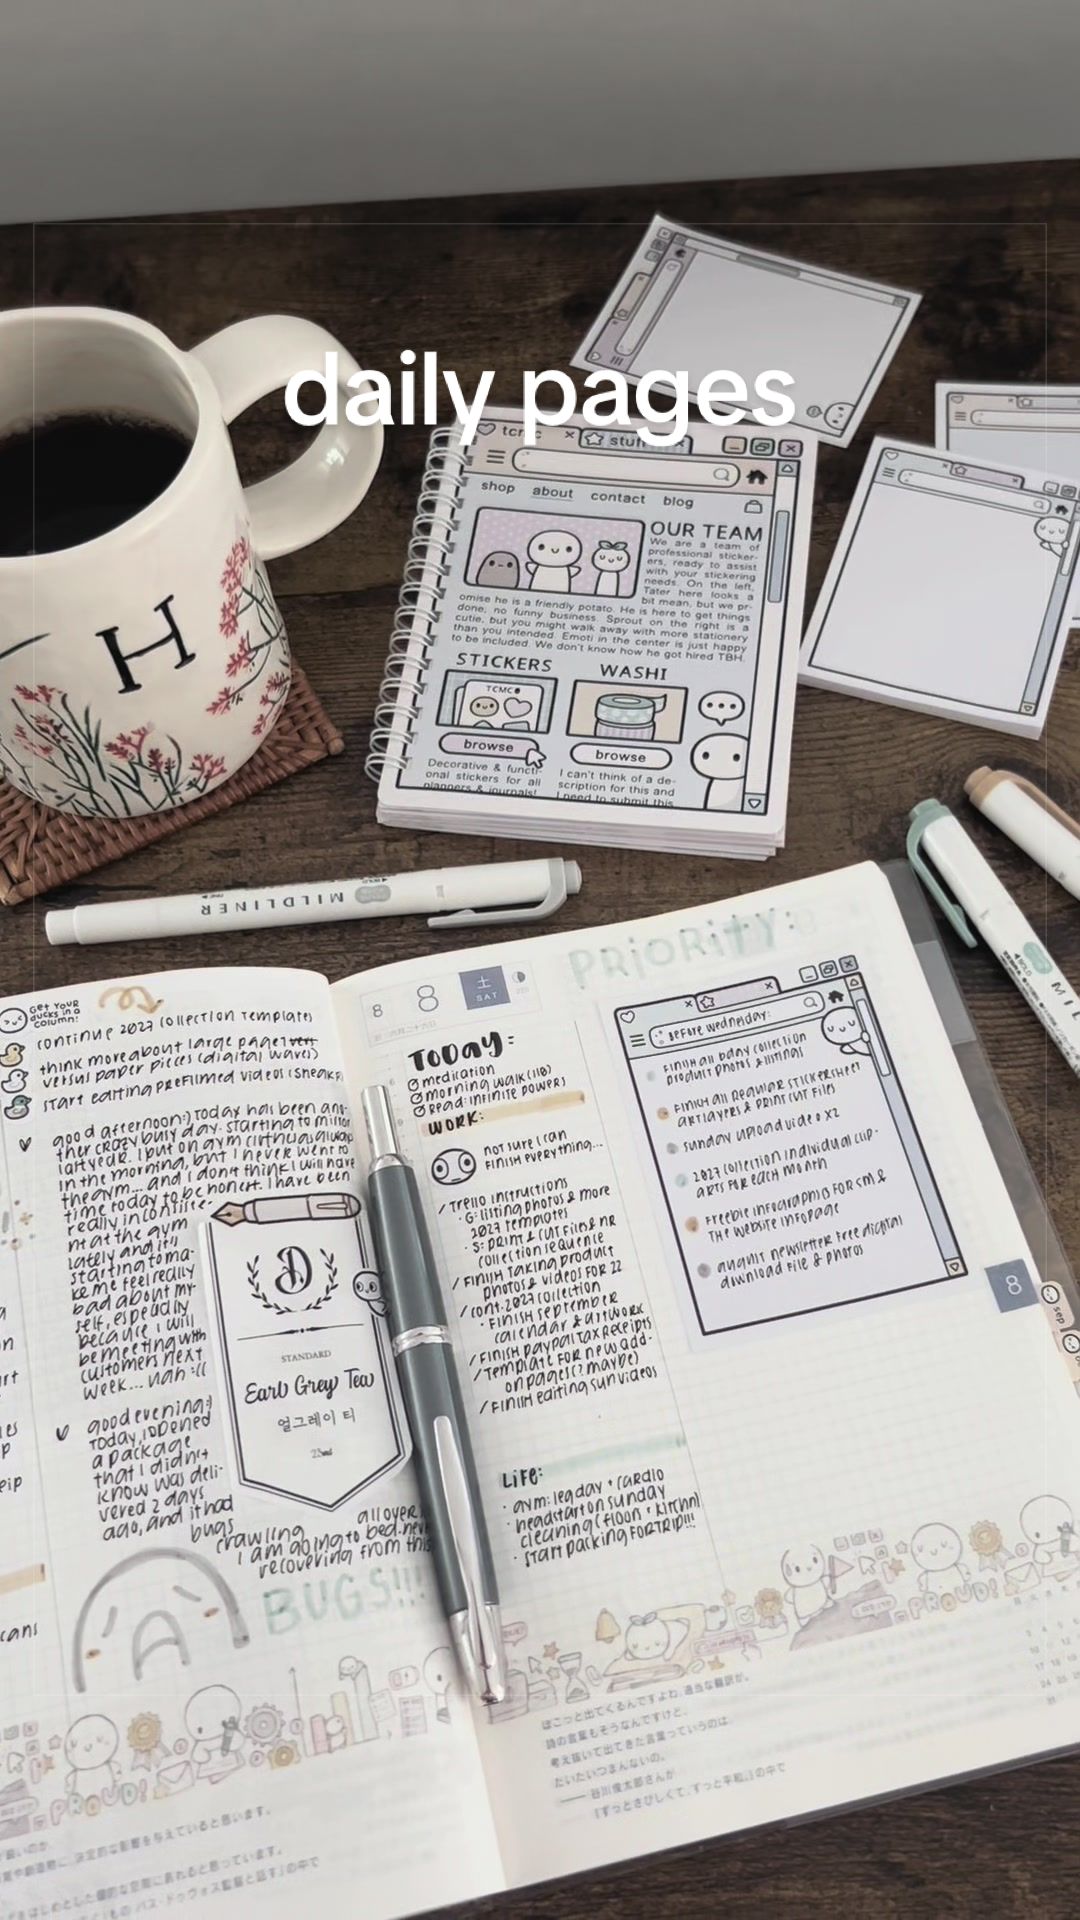 daily pages
tcmc
stuff
shop about contact blog
OUR TEAM
We are a team of
professional sticker-
ers, ready to assist
with your stickering
needs. On the left,
Tater here looks a
bit mean, but we pr-
omise he is a friendly potato. He is here to get things
done, no funny business. Sprout on the right is a
cutie, but you might walk away with more stationery
than you intended. Emoti in the center is just happy
to be included. We don't know how he got hired TBH.
STICKERS
WASHI
TCMC
browse
browse
Decorative & functi-
onal stickers for all
planners & journals!
I can't think of a de-
scription for this and
I need to submit this
H
MILDLINER
MIL
Get your
ducks in a
column!
continue 2027 collection templates
think more about large page
versus paper pieces (digital waves)
start editing prefilmed videos (sneak
good afternoon:) today has been ano-
ther crazy busy day. starting to mirror
last year. I put on gym clothes
in the morning, but I never went to
the gym... and I don't think I will have
time today to be honest. I have been
really inconsiste-
nt at the gym
lately and it's
starting to ma-
ke me feel really
bad about my-
self, especially
because I will
be meeting with
customers next
week... nah :((
good evening:)
today, I opened
a package
that I didn't
know was deli-
vered 2 days
ago, and it had
bugs
crawling all over.
I am going to bed. never
recovering from this
BUGS!!!
D
STANDARD
Earl Grey Tea
얼그레이 티
8
8
土
SAT
TODAY:
medication
morning walk (118)
Read: infinite powers
WORK:
not sure I can
finish everything...
/ Trello instructions
· G: listing photos & more
2027 templates
· S: print & cut files & NR
collection sequence
/ Finish taking product
photos & videos for 22
/ cont. 2027 collection
· Finish September
calendar & artwork
/ Finish PayPal tax receipts
/ Template for new add-
on pages (? maybe)
/ Finish editing sun videos
Life:
· gym: leg day + cardio
· headstart on sunday
cleaning (floor + kitchn)
· start packing for trip!!!
PRIORITY:
Before wednesday:
Finish all bday collection
product photos & listings
Finish all regular sticker sheet
art layers & print cut files
sunday upload video x2
2027 collection individual clip-
arts for each month
Freebie infographics for CM &
the website info page
august newsletter free digital
download file & photos
8
sep
PROUD!
PROUD!
ぽこっと出てくるんですよね、適当な翻訳が。
詩の言葉もそうなんですけど、
考え抜いて出てきた言葉っていうのは、
だいたいつまんないの。
—— 谷川俊太郎さんが
『ずっとさびしくて、ずっと平和。』の中で